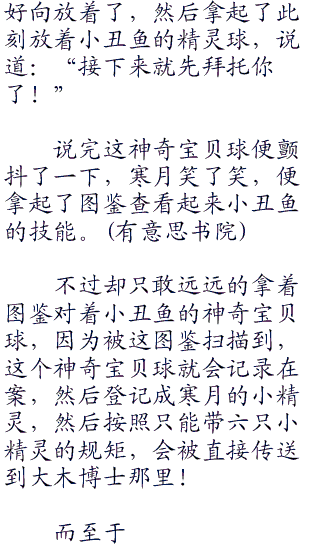 好向放着了，然后拿起了此
刻放着小丑鱼的精灵球，说
道：“接下来就先拜托你
了！”
说完这神奇宝贝球便颤
抖了一下，寒月笑了笑，便
拿起了图鉴查看起来小丑鱼
的技能。(有意思书院)
不过却只敢远远的拿着
图鉴对着小丑鱼的神奇宝贝
球，因为被这图鉴扫描到，
这个神奇宝贝球就会记录在
案，然后登记成寒月的小精
灵，然后按照只能带六只小
精灵的规矩，会被直接传送
到大木博士那里！
而至于